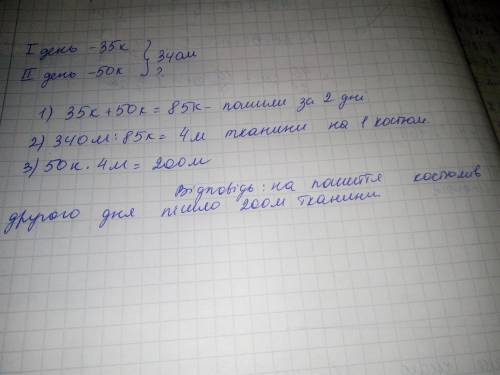 I день - 35к } 340м
II день - 50к } ?
1) 35к + 50к = 85к - пошили за 2 дні
2) 340м : 85к = 4м тканини на 1 костюм
3) 50к · 4м = 200м
Відповідь: на пошиття костюмів
другого дня пішло 200м тканини